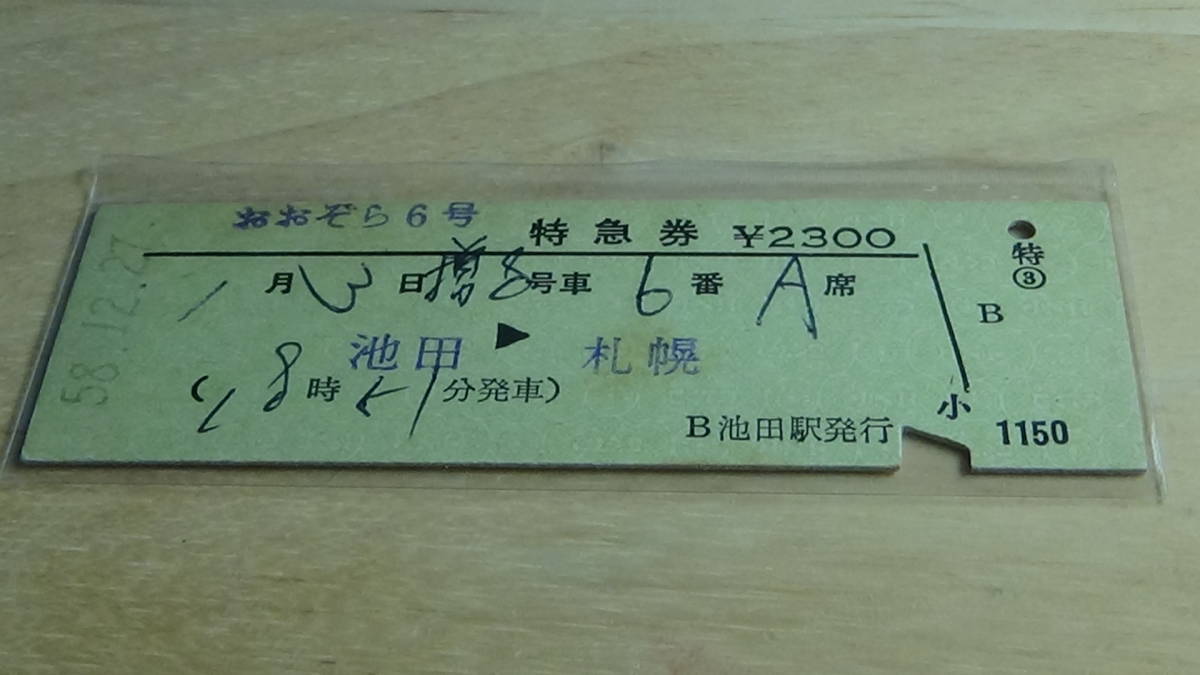 おおぞら6号
特急券 ¥2300
1月3日増8号車6番A席
池田▶札幌
(18時21分発車)
B池田駅発行
58.12.27
特
③
B
小
1150